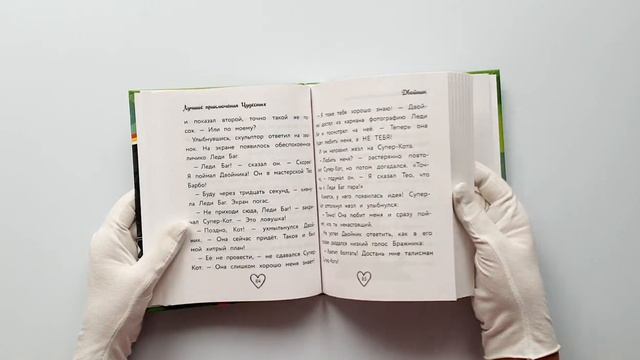 Лучшие приключения Чудесных
и показал второй, точно такой же по-
сок. — Или по моему?
Улыбнувшись, скульптор ответил на зво-
нок. На экране появилось обеспокоенное
личико Леди Баг.
— Леди Баг! — сказал он. — Скорее
Я поймал Двойника! Он в мастерской Тео
Барбо!
— Буду через тридцать секунд, —
ла Леди Баг. Экран погас.
— Не приходи сюда, Леди Баг! —
чал Супер-Кот. — Это ловушка!
— Поздно, Кот! — ухмыльнулся Двой-
ник. — Она сейчас придёт. Таков и был
мой хитрый план!
— Её не провести, — не сдавался Супер-
Кот. — Она слишком хорошо меня знает!
64
Двойник
— Я тоже тебя хорошо знаю! — Двой-
достал из кармана фотографию Леди
и посмотрел на неё. — Теперь она
любить меня, а НЕ ТЕБЯ!
направил жезл на Супер-Кота.
— Любить меня? — растерянно повто-
Супер-Кот, но потом догадался. «Точ-
— подумал он. — Я сказал Тео, что
и Леди Баг пара!»
у него появилась идея! Супер-
оттолкнул жезл и улыбнулся:
— Точно! Она любит меня и сразу пой-
что ты ненастоящий.
Не успел Двойник ответить, как в его
раздался низкий голос Бражника:
— Хватит болтать! Достань мне талисман
65